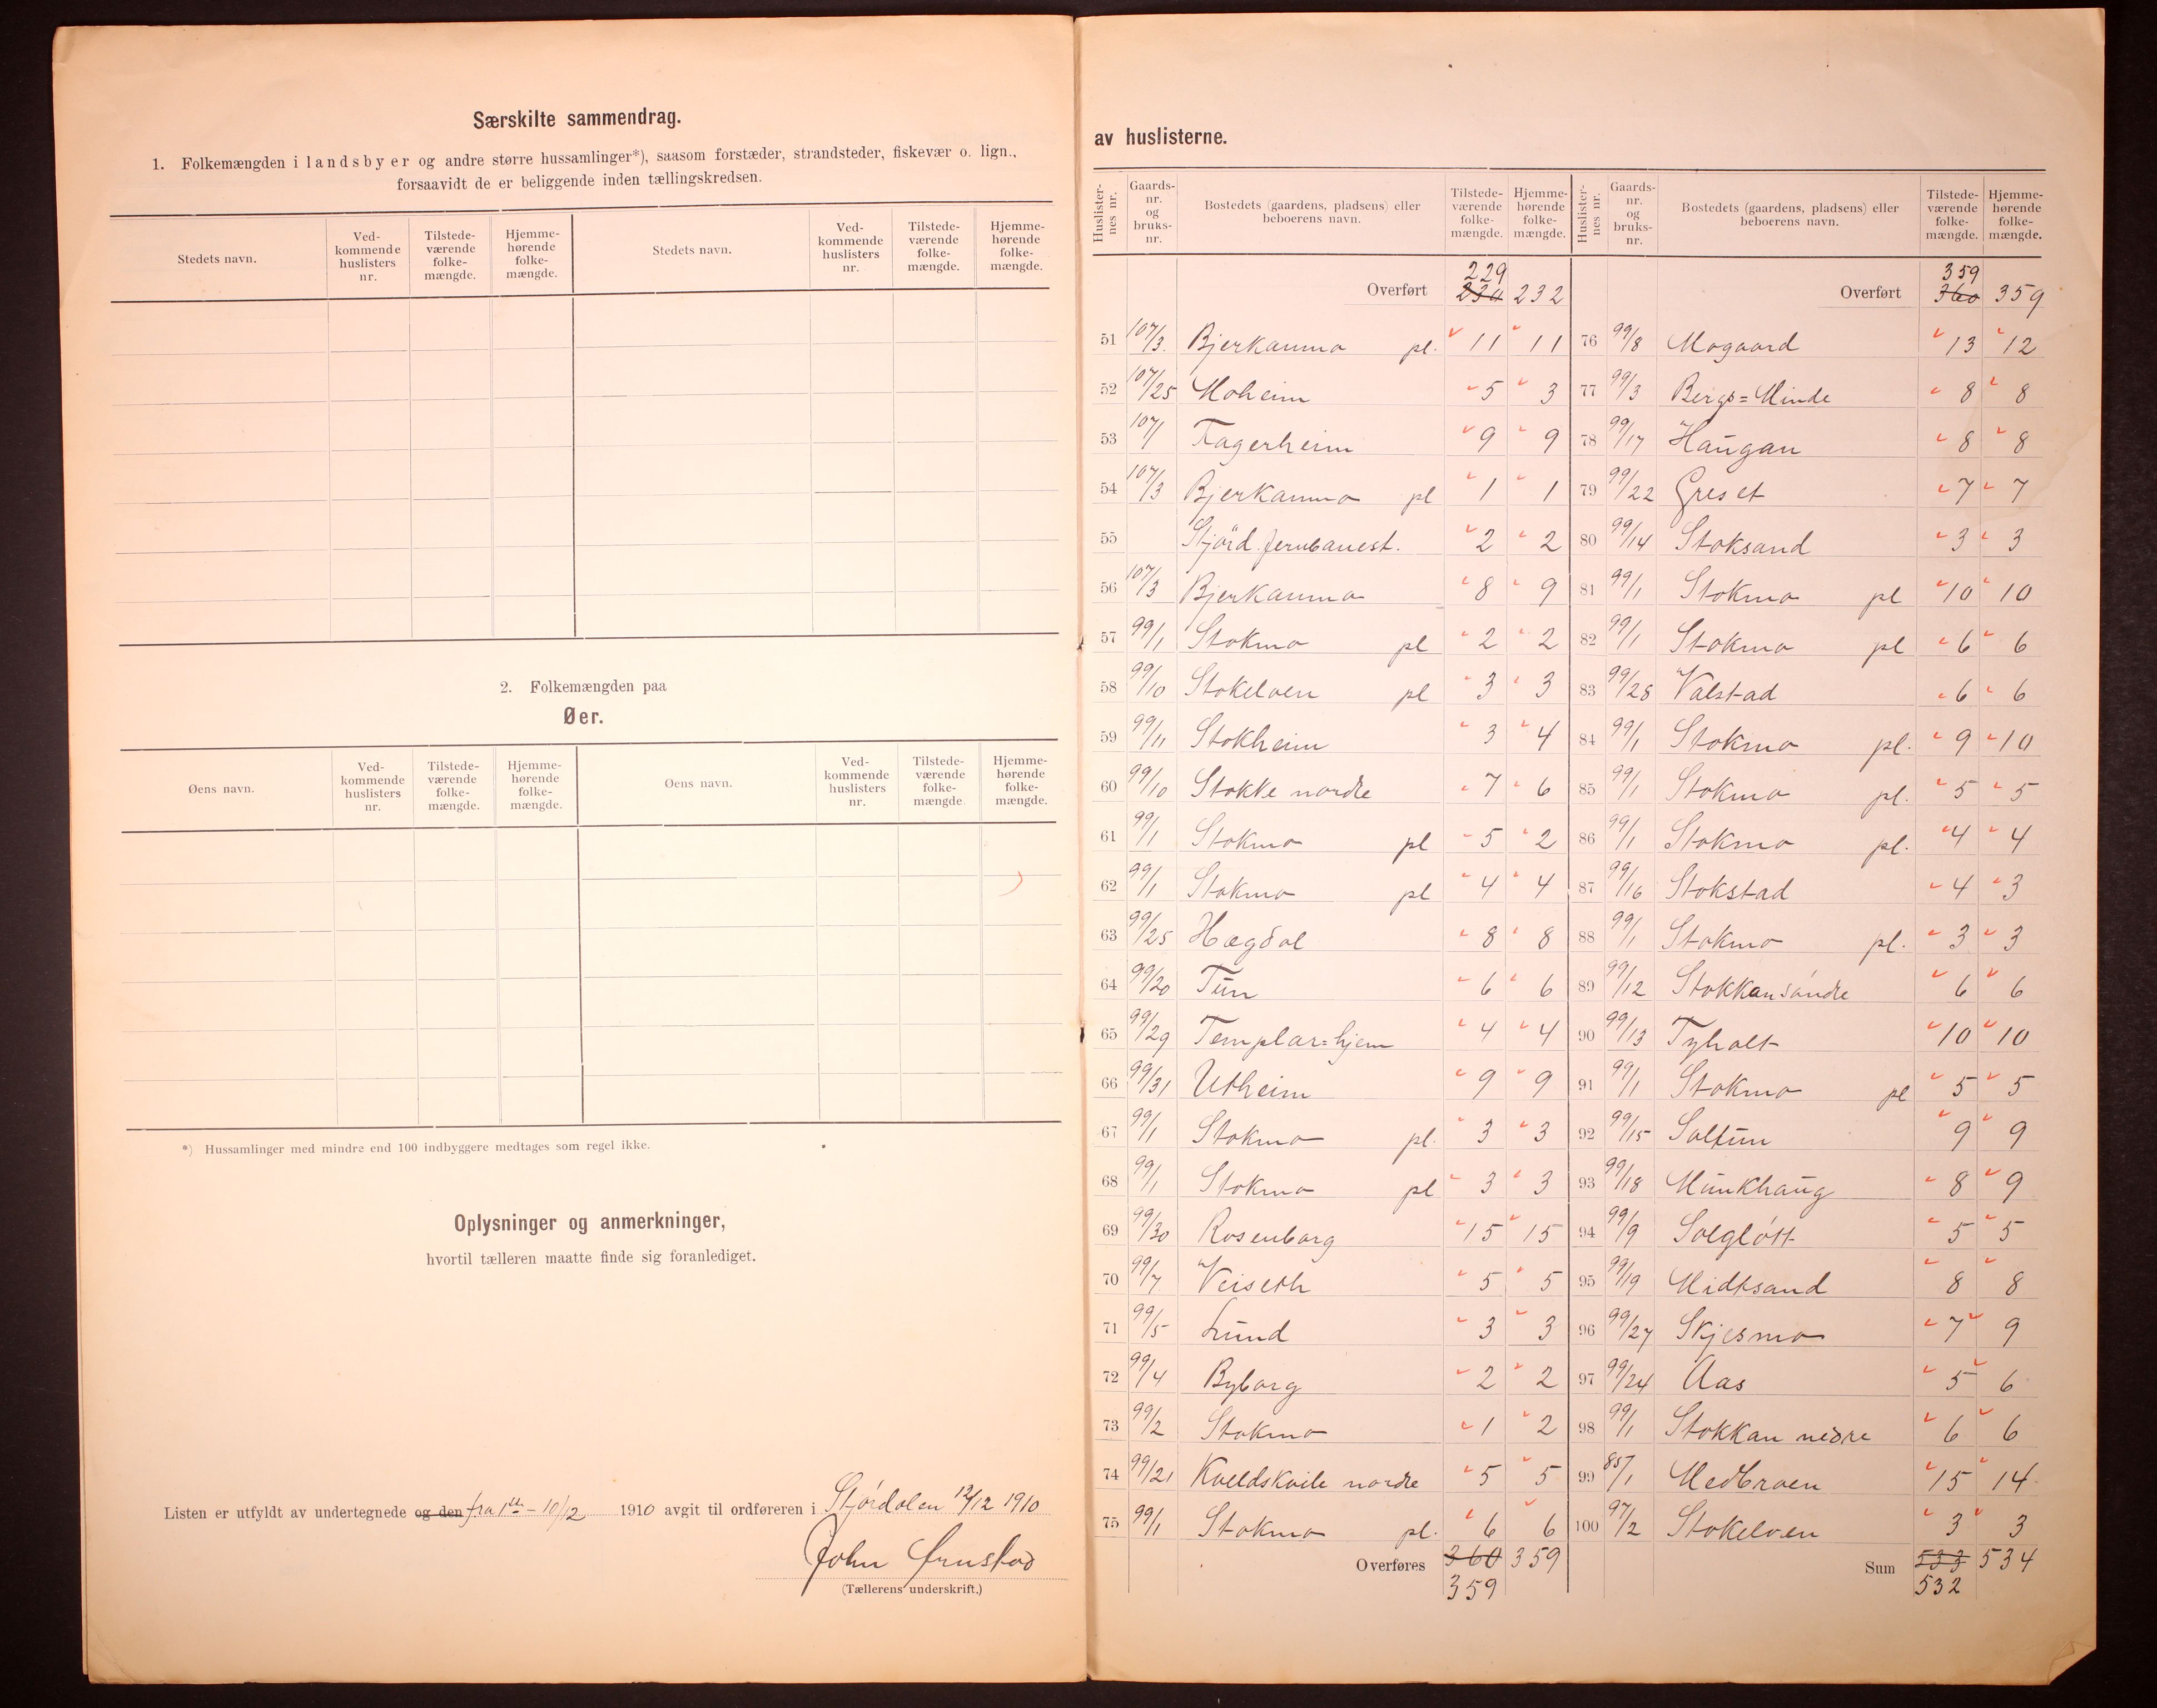 Særskilte sammendrag.
1. Folkemængden i landsbyer og andre større hussamlinger*), saasom forstæder, strandsteder, fiskevær o. lign.,
forsaavidt de er beliggende inden tællingskredsen.
Stedets navn. Ved-kommende huslisters nr. Tilstede-værende folke-mængde. Hjemme-hørende folke-mængde. Stedets navn. Ved-kommende huslisters nr. Tilstede-værende folke-mængde. Hjemme-hørende folke-mængde.
2. Folkemængden paa
Øer.
Øens navn. Ved-kommende huslisters nr. Tilstede-værende folke-mængde. Hjemme-hørende folke-mængde. Øens navn. Ved-kommende huslisters nr. Tilstede-værende folke-mængde Hjemme-hørende folke-mængde.
*) Hussamlinger med mindre end 100 indbyggere medtages som regel ikke.
Oplysninger og anmerkninger,
hvortil tælleren maatte finde sig foranlediget.
Listen er utfyldt av undertegnede og den fra 1ste - 10/12 1910 avgit til ordføreren i Stjørdalen 12/12 1910
John
(Tællerens underskrift.)
av huslisterne.
Huslister-nes nr. Gaards-nr. og bruks-nr. Bostedets (gaardens, pladsens) eller beboerens navn. Tilstede-værende folke-mængde. Hjemme-hørende folke-mængde.
229
Overført 230 232
51 107/3. Bjerkanmo pl. 11 11
52 107/25 Moheim 5 3
53 107/1 Fagerheim 9 9
54 107/3 Bjerkanmo pl 1 1
55 Stjörd. Jernbanest. 2 2
56 107/3 Bjerkanmo 8 9
57 99/1 Stokmo pl 2 2
58 99/10 Stokeloen pl 3 3
59 99/11 Stokheim 3 4
60 99/10 Stokke nordre 7 6
61 99/1 Stokmo pl 5 2
62 99/1 Stokmo pl 4 4
63 99/25 Hægdal 8 8
64 99/20 Tun 6 6
65 99/29 Templar=hjem 4 4
66 99/31 Utheim 9 9
67 99/1 Stokmo pl. 3 3
68 99/1 Stokmo pl 3 3
69 99/30 Rosenborg 15 15
70 99/7 Veiseth 5 5
71 99/5 Lund 3 3
72 99/4 Byborg 2 2
73 99/2 Stokmo 1 2
74 99/21 Kveldskvile nordre 5 5
75 99/1 Stokmo pl. 6 6
Overføres 360 359
359
Huslister-nes nr. Gaards-nr. og bruks-nr. Bostedets (gaardens, pladsens) eller beboerens navn. Tilstede-værende folke-mængde. Hjemme-hørende folke-mængde.
359
Overført 360 359
76 99/8 Mogaard 13 12
77 99/3 Bergs=Minde 8 8
78 99/17 Haugan 8 8
79 99/22 Greset 7 7
80 99/14 Stoksand 3 3
81 99/1 Stokmo pl 10 10
82 99/1 Stokmo pl 6 6
83 99/28 Valstad 6 6
84 99/1 Stokmo pl. 9 10
85 99/1 Stokmo pl. 5 5
86 99/1 Stokmo pl. 4 4
87 99/16 Stokstad 4 3
88 99/1 Stokmo pl. 3 3
89 99/12 Stokkan söndre 6 6
90 99/13 Tyholt 10 10
91 99/1 Stokmo pl 5 5
92 99/15 Soltun 9 9
93 99/18 Munkhaug 8 9
94 99/9 Solgløtt 5 5
95 99/19 Midtsand 8 8
96 99/27 Skjesmo 7 9
97 99/24 Aas 5 6
98 99/1 Stokkan nedre 6 6
99 85/1 Medbroen 15 14
100 97/2 Stokeloen 3 3
Sum 533 534
532